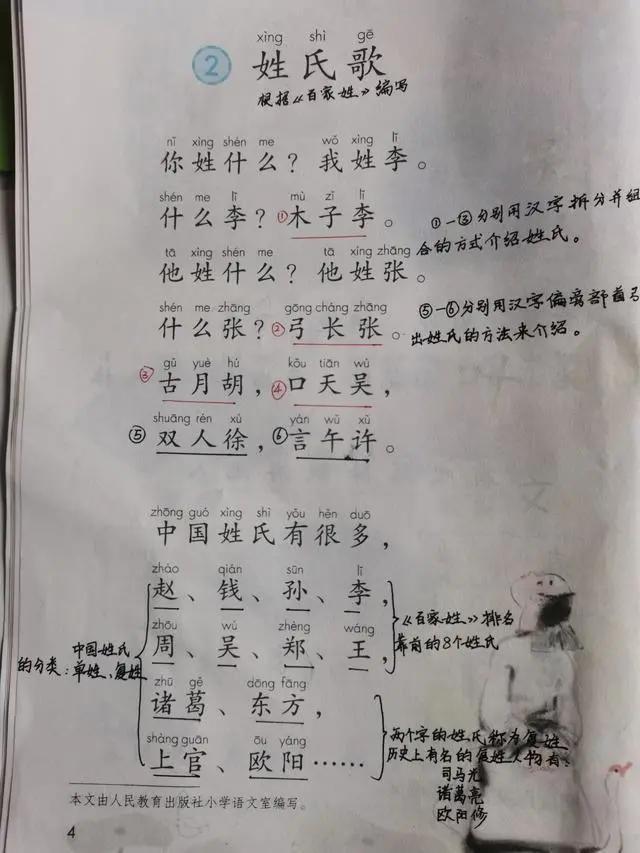 xìng shì gē
2 姓氏歌
根据《百家姓》编写
nǐ xìng shén me wǒ xìng lǐ
你姓什么？我姓李。
shén me lǐ mù zǐ lǐ
什么李？①木子李。
①-③分别用汉字拆分并组
合的方式介绍姓氏。
tā xìng shén me tā xìng zhāng
他姓什么？他姓张。
shén me zhāng gōng cháng zhāng
什么张？②弓长张。
⑤-⑥分别用汉字偏旁部首引
出姓氏的方法来介绍。
gǔ yuè hú kǒu tiān wú
③古月胡，④口天吴，
shuāng rén xú yán wǔ xǔ
⑤双人徐，⑥言午许。
zhōng guó xìng shì yǒu hěn duō
中国姓氏有很多，
zhào qián sūn lǐ
赵、钱、孙、李，
zhōu wú zhèng wáng
周、吴、郑、王，
《百家姓》排名
靠前的8个姓氏
中国姓氏
的分类：单姓、复姓
zhū gě dōng fāng
诸葛、东方，
shàng guān ōu yáng
上官、欧阳……
两个字的姓氏称为复姓
历史上有名的复姓人物有：
司马光
诸葛亮
欧阳修
本文由人民教育出版社小学语文室编写。
4